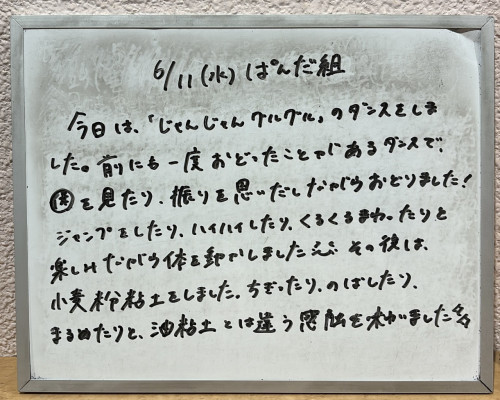 6/11(水) ぱんだ組
今日は、「じゃんじゃんグルグル」のダンスをしま
した。前にも一度おどったことがあるダンスで、
保を見たり、振りを思いだしながらおどりました!
ジャンプをしたり、ハイハイしたり、くるくるまわったりと
楽しみながら体を動かしました。その後は、
小麦粉粘土をしました。ちぎったり、のばしたり、
まるめたりと、油粘土とは違う感触を味がました